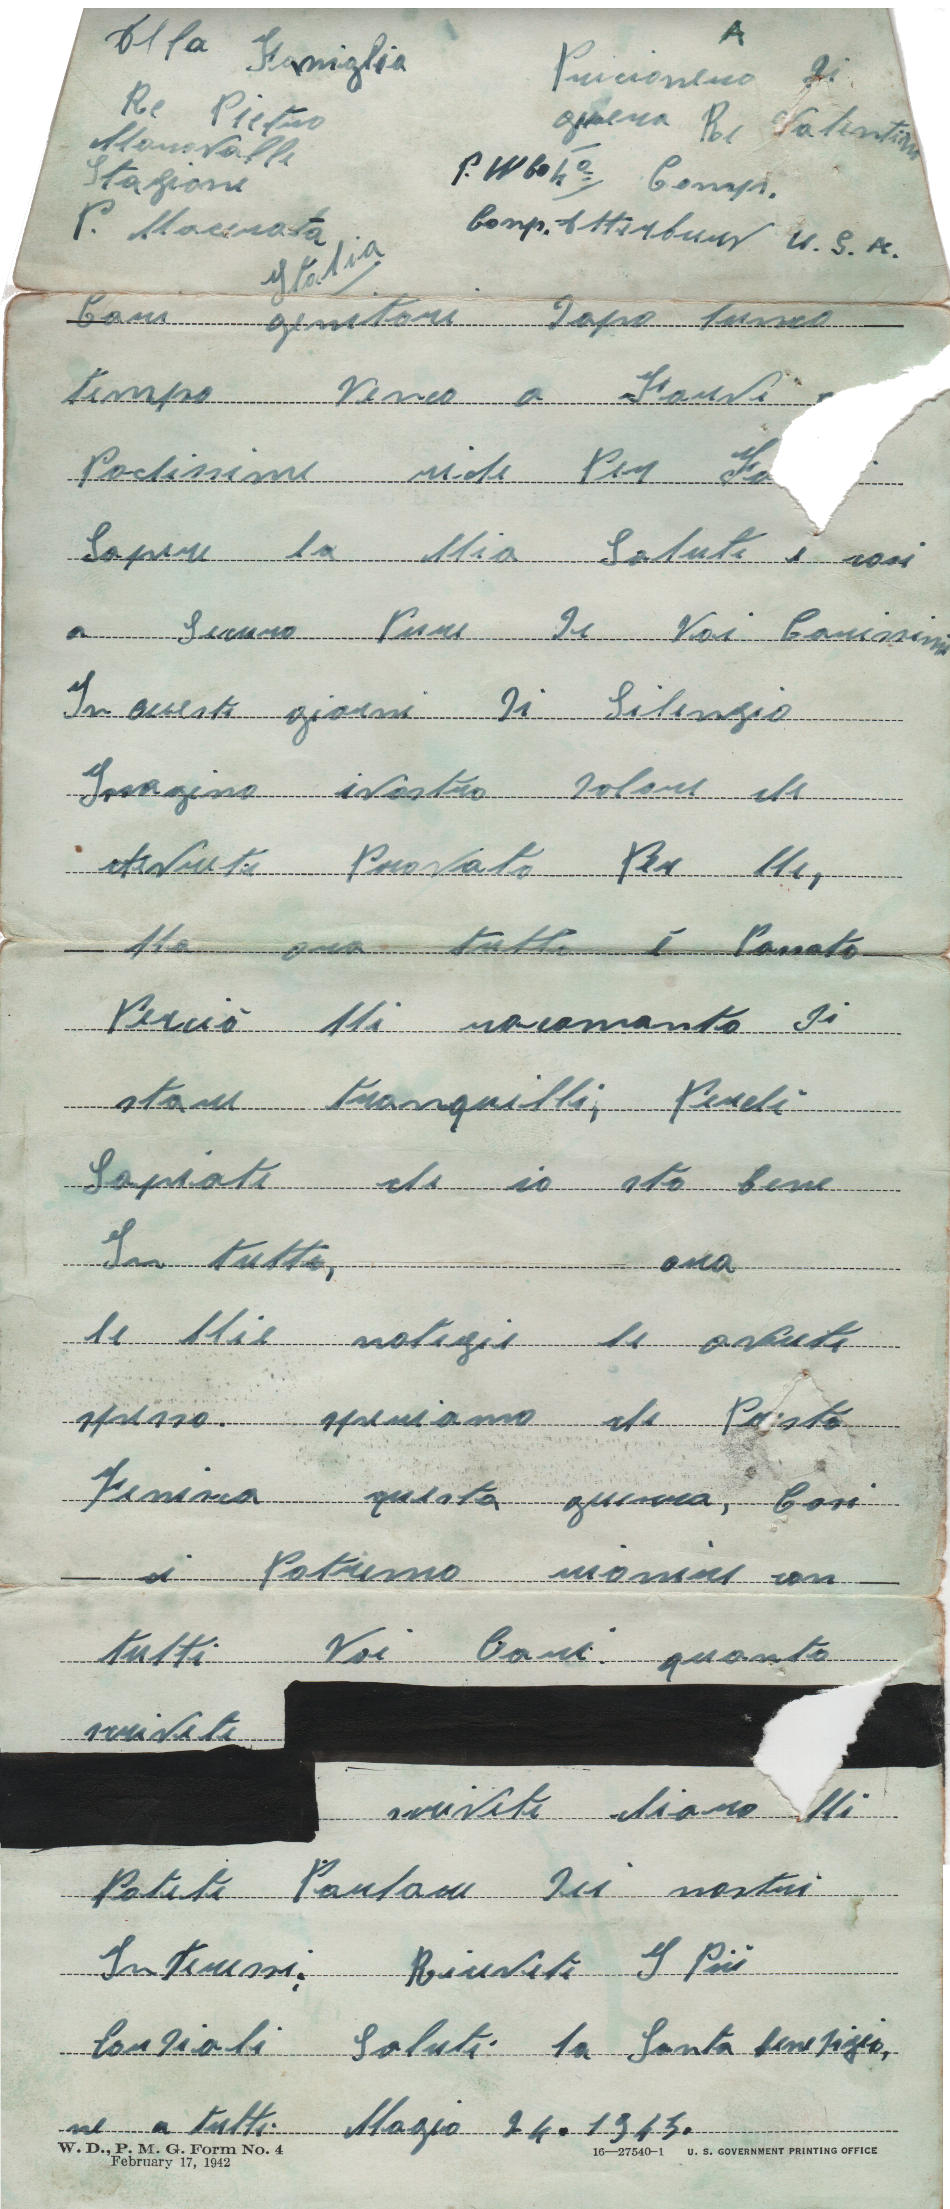 Alla Famiglia
Re Pietro
Morovalle
Stazione
P. Macerata
Italia
A
Pricioniero Di
guera Re Valentino
P.W 60 4ª Comp.
Comp. Atterburi U.S.A.
Cari genitori Dopo lunco
tempo Venco a Farvi
Pochissime riche Per
Sapere la Mia Salute e cosi
a Securo Pure De Voi Carissimi
In questi giorni Di Silenzio
Imagino ivostro dolore che
Avrete Provato Per Me,
Ma ora tutto è Passato
Perciò Mi racomanto Di
stare tranquilli, Perchè
Sapiate che io sto bene
In tutto, ora
le Mie notezie le avrete
spesso. speriamo che Presto
Fenisca questa guerra, Cosi
ci Potremo rionire con
tutti Voi Cari. quanto
scrivete
scrivete chiaro Mi
Potete Parlare Dei nostri
Interessi; Ricevete I Più
Cordiali Saluti. la Santa benedizio,
ne a tutti. Magio 24. 1943.
W. D., P. M. G. Form No. 4
February 17, 1942
16—27540-1 U. S. GOVERNMENT PRINTING OFFICE